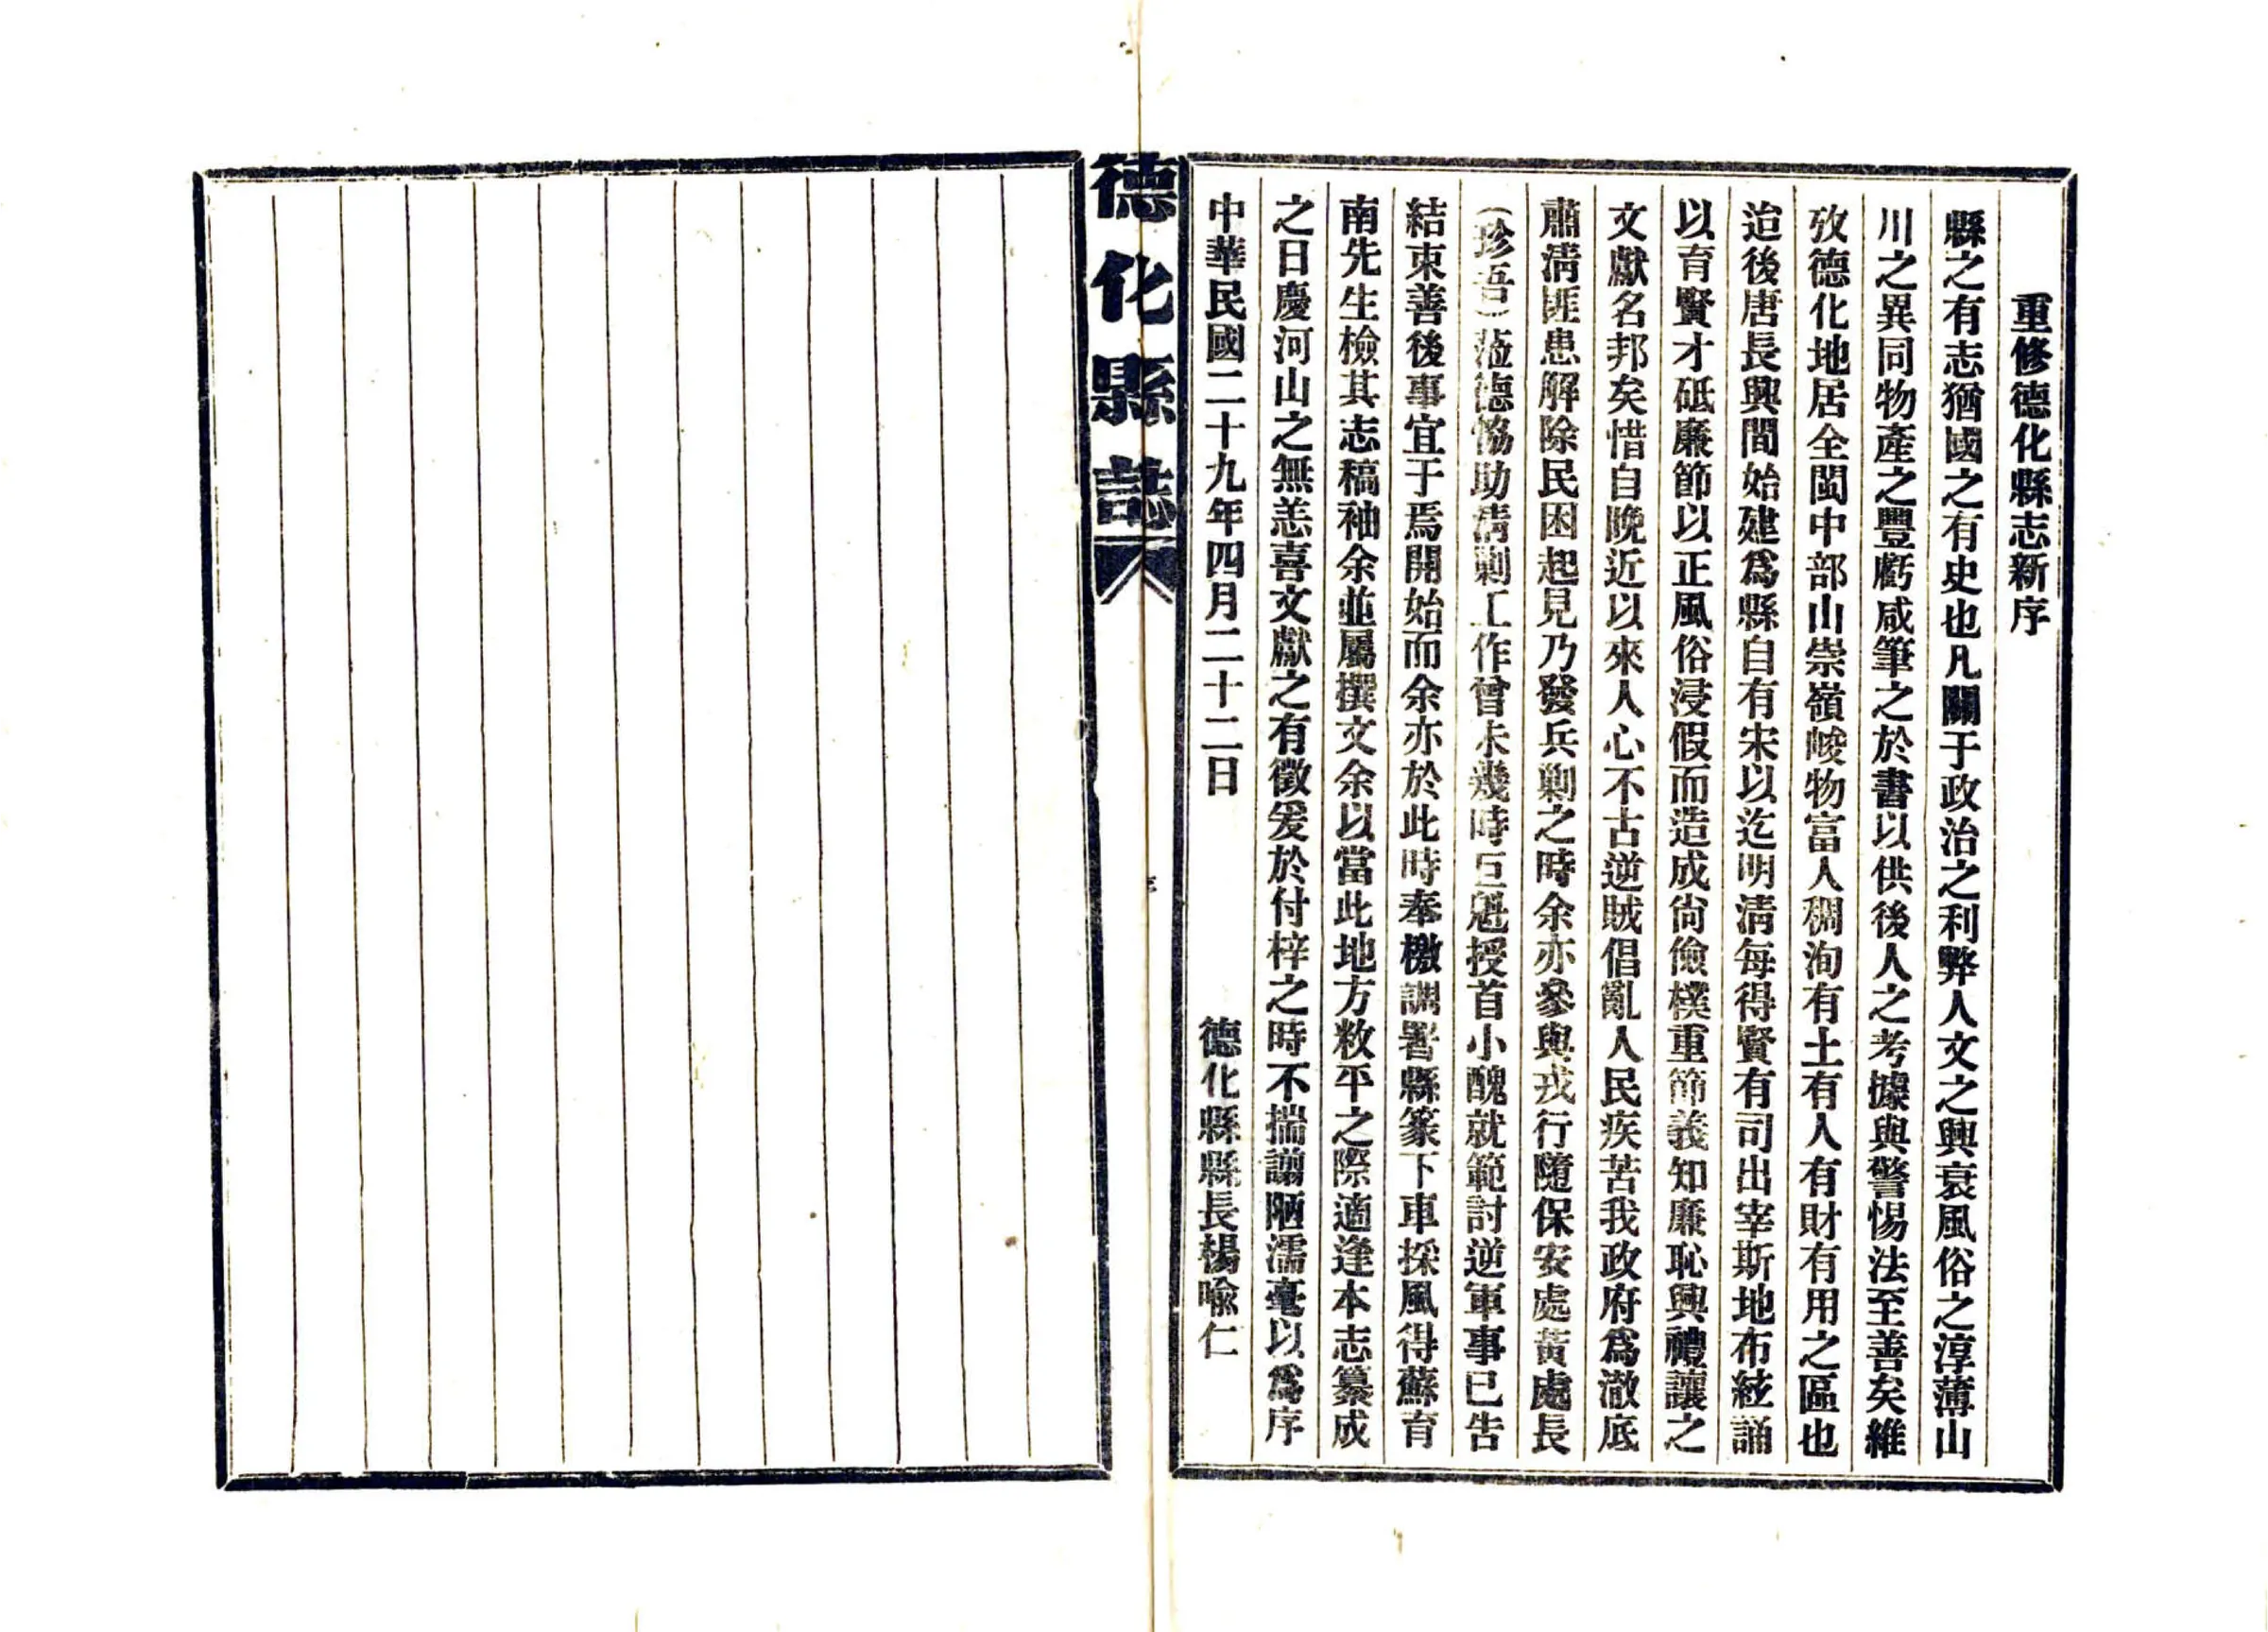 重修德化縣志新序
縣之有志猶國之有史也凡關于政治之利弊人文之興衰風俗之淳薄山
川之異同物產之豐虧咸筆之於書以供後人之考據與警惕法至善矣維
攷德化地居全閩中部山崇嶺峻物富人稠洵有土有人有財有用之區也
迨後唐長興間始建爲縣自有宋以迄明淸每得賢有司出宰斯地布絃誦
以育賢才砥廉節以正風俗浸假而造成尙儉樸重節義知廉恥興禮讓之
文獻名邦矣惜自晚近以來人心不古逆賊倡亂人民疾苦我政府爲澈底
肅淸匪患解除民困起見乃發兵剿之時余亦參與戎行隨保安處黃處長
（珍吾）蒞德恊助淸剿工作曾未幾時巨魁授首小醜就範討逆軍事已告
結束善後事宜于焉開始而余亦於此時奉檄調署縣篆下車採風得蘇育
南先生檢其志稿袖余並屬撰文余以當此地方敉平之際適逢本志纂成
之日慶河山之無恙喜文獻之有徵爰於付梓之時不揣譾陋濡毫以爲序
中華民國二十九年四月二十二日
德化縣縣長楊喩仁
德化縣誌